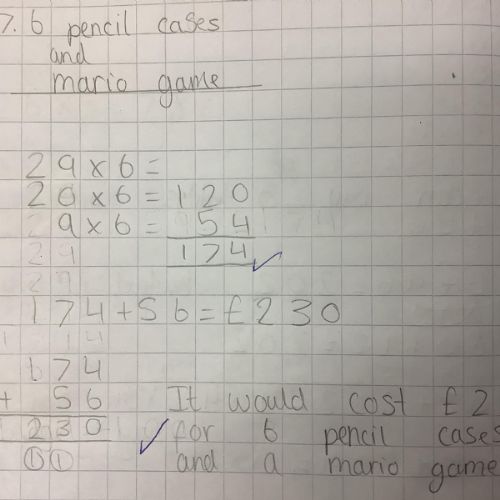 7. 6 pencil cases
and
mario game
29 x 6 =
20 x 6 = 120
9 x 6 = 54
174
174 + 56 = £230
174
+ 56
230
11
It would cost £2
for 6 pencil cases
and a mario game